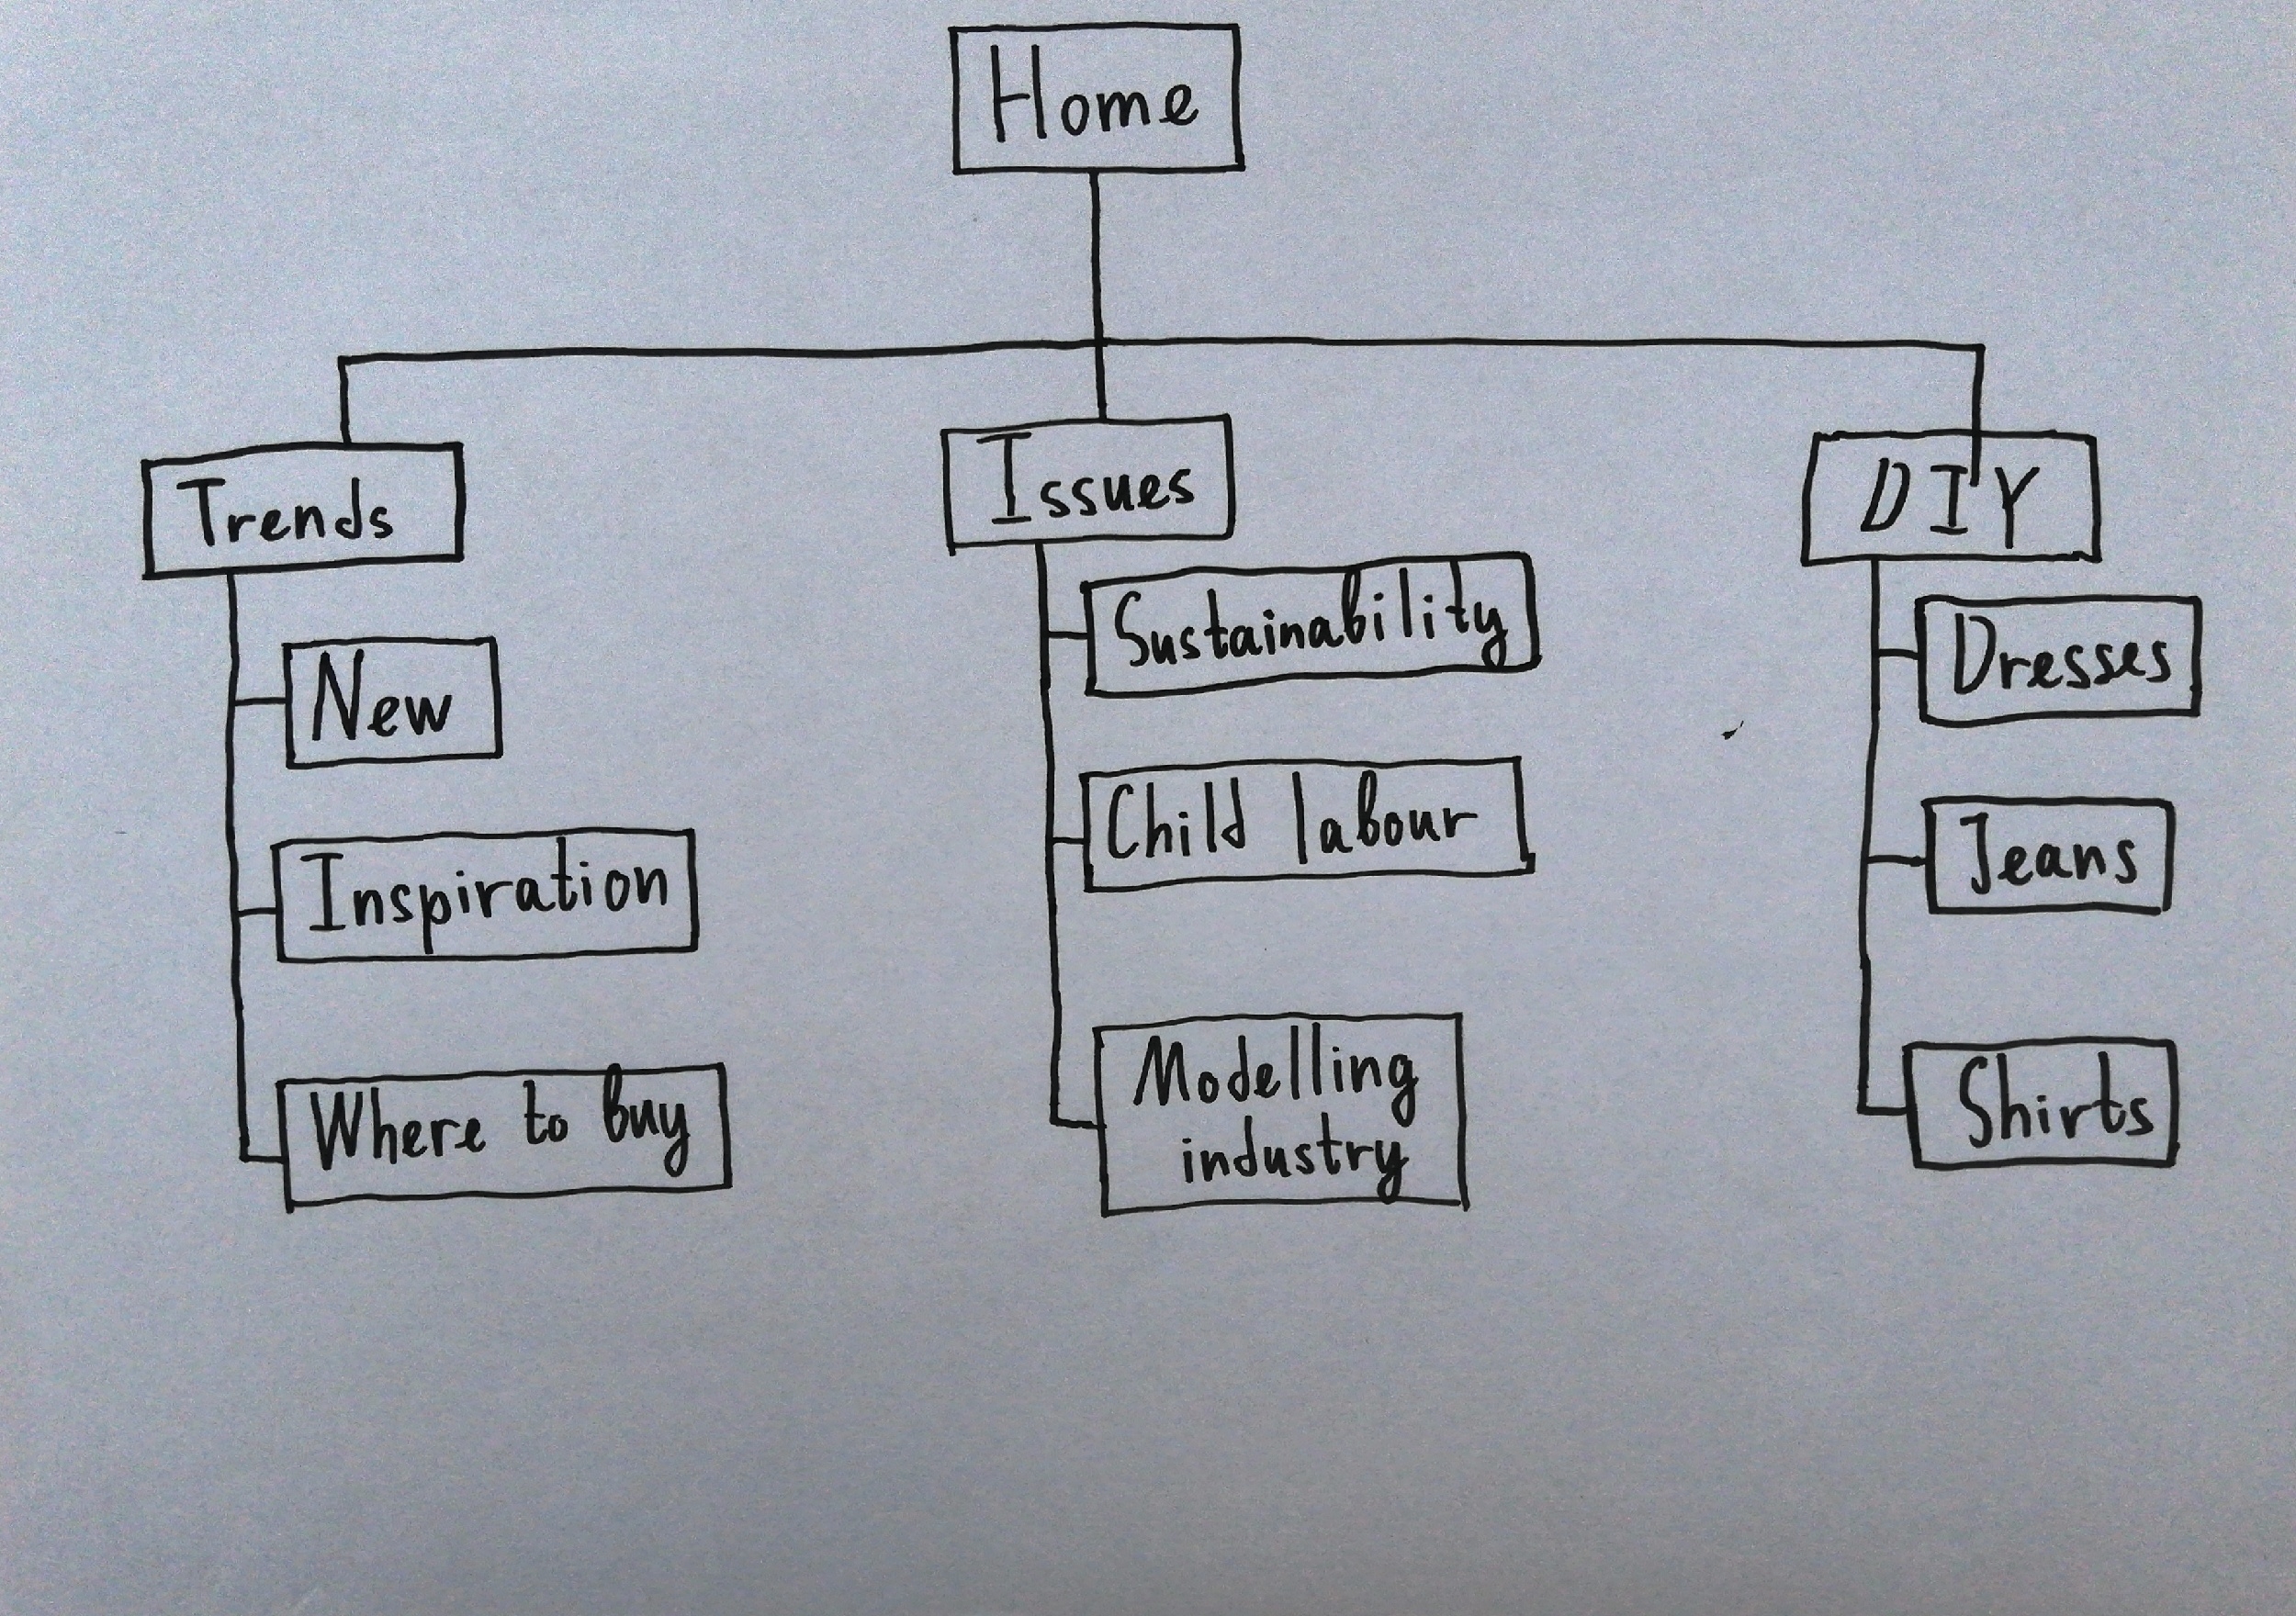 Home
Trends
Issues
DIY
New
Inspiration
Where to buy
Sustainability
Child labour
Modelling
industry
Dresses
Jeans
Shirts